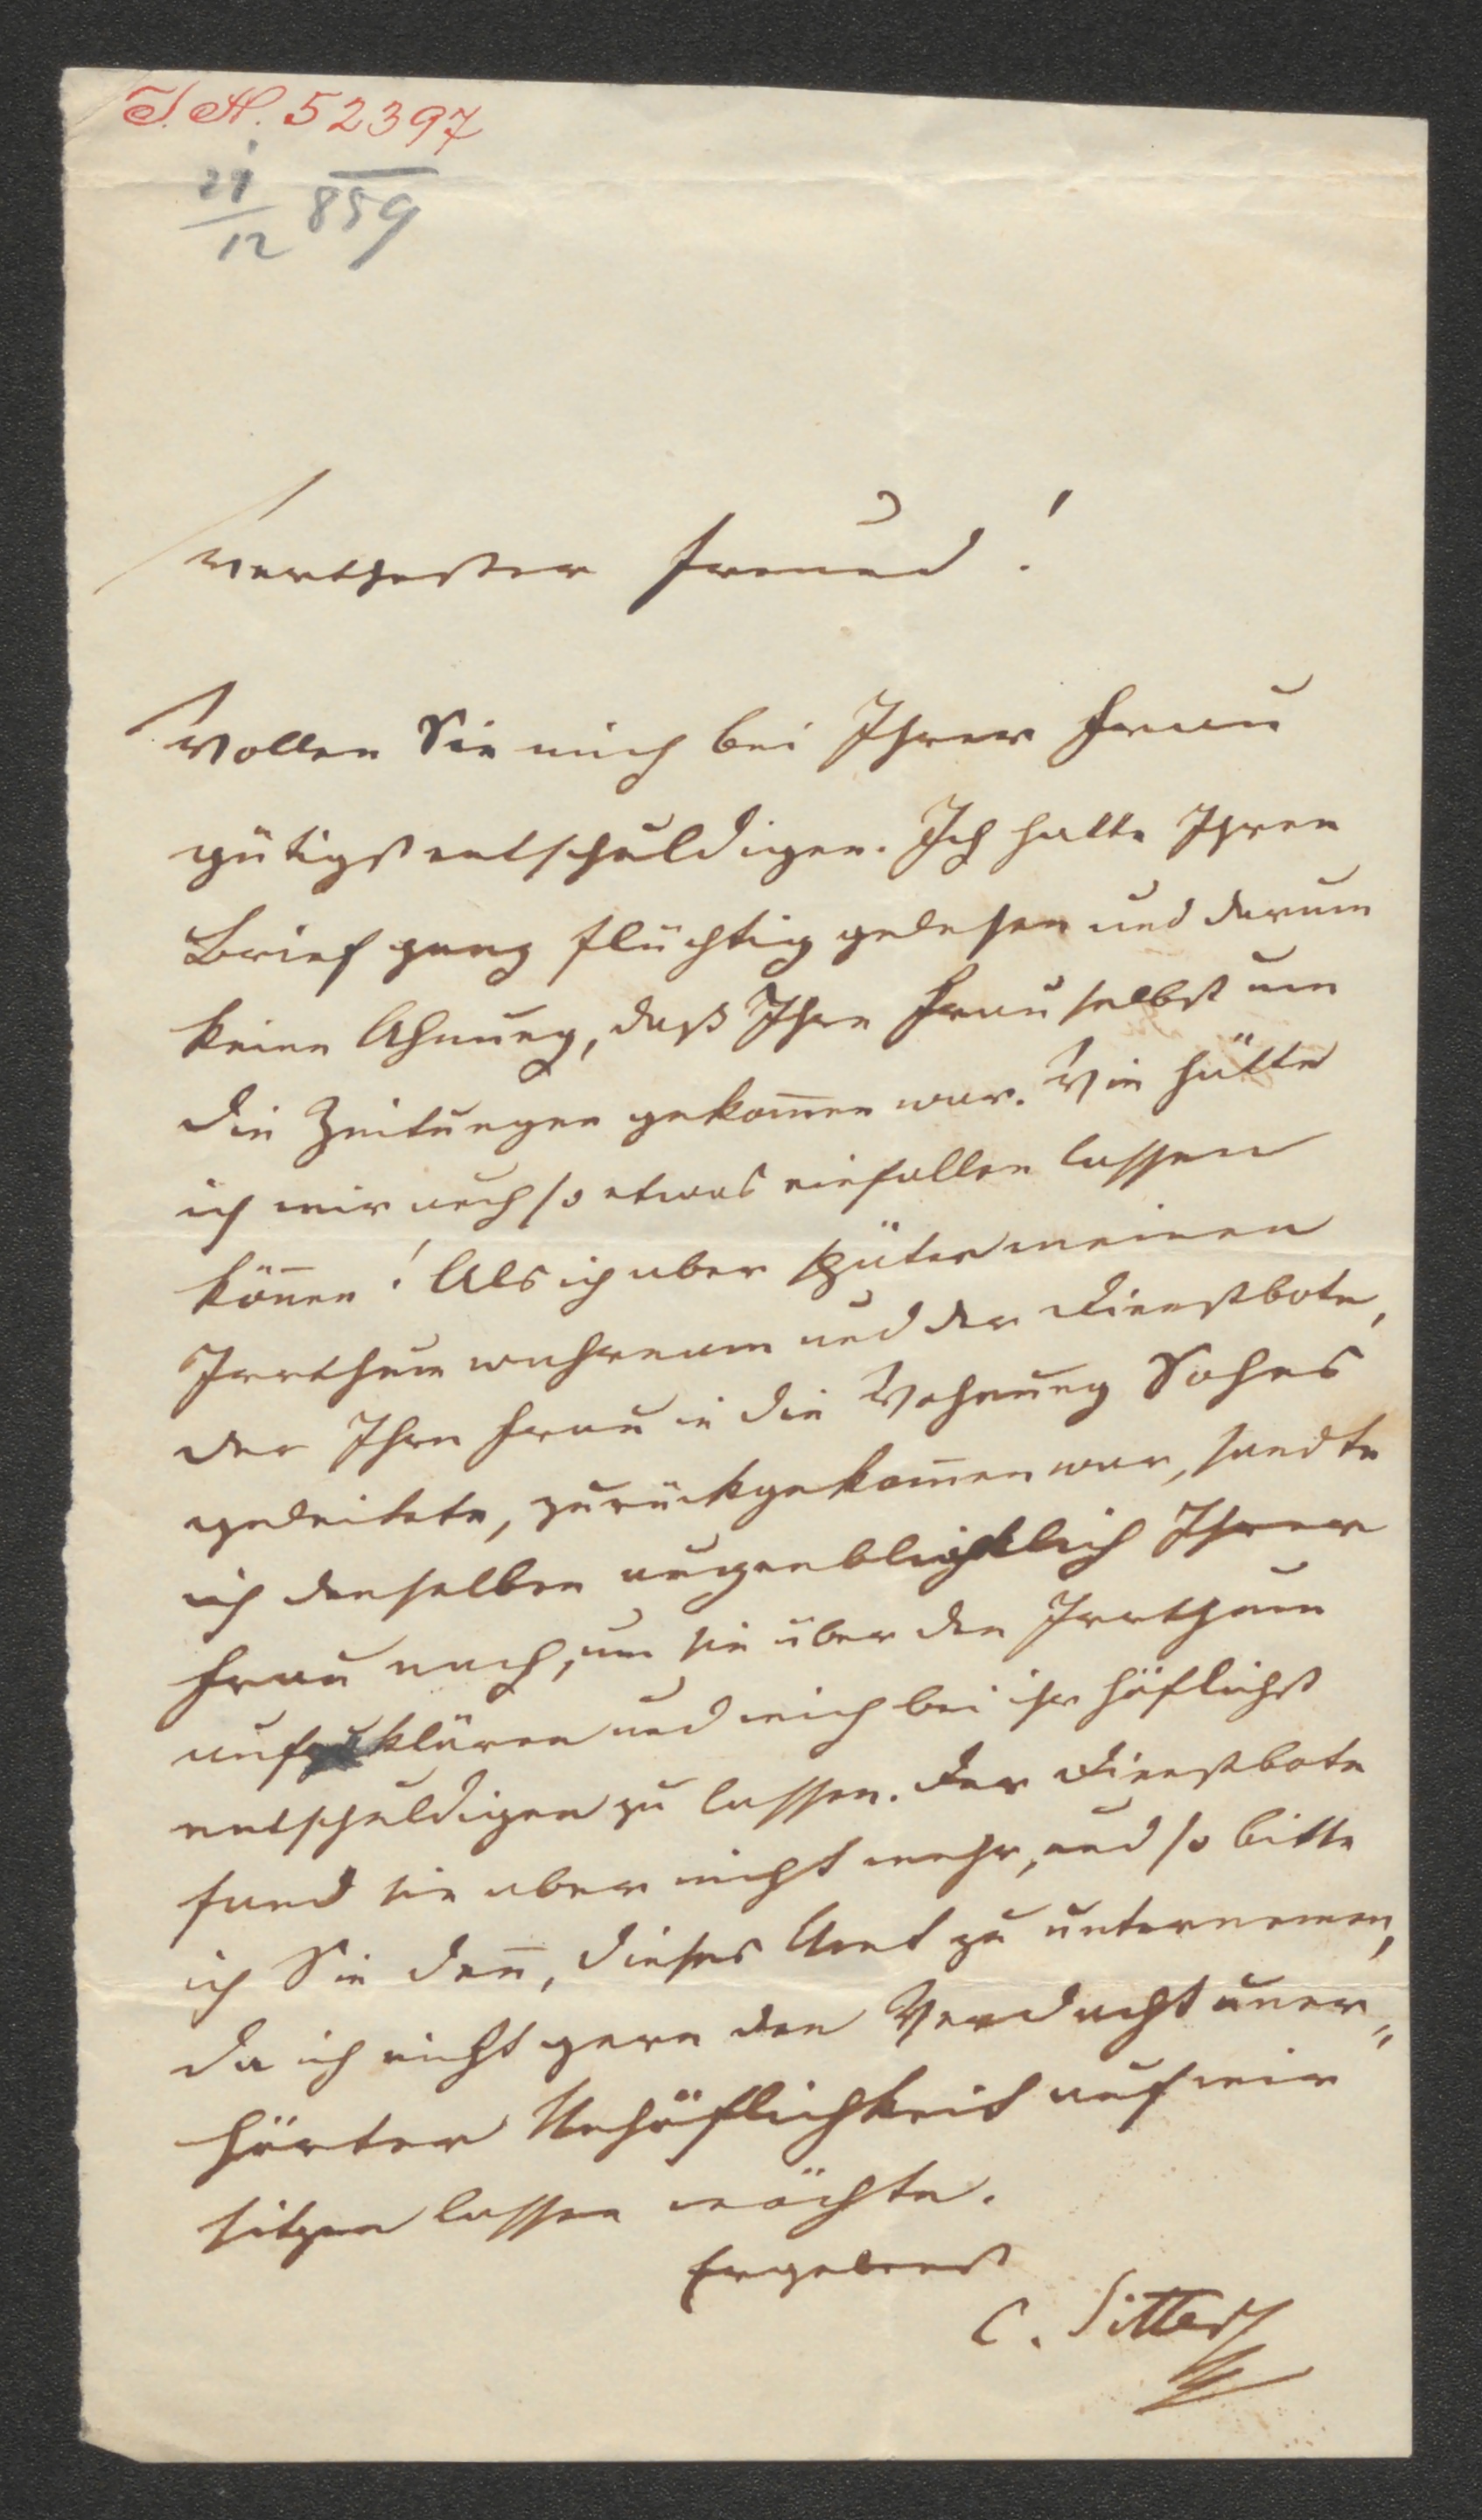 I. N. 52397
21/12 859
Werthester Freund!
Wollen Sie mich bei Ihrer Frau
gütigst entschuldigen. Ich hatte Ihren
Brief ganz flüchtig gelesen und darum
keine Ahnung, daß Ihre Frau selbst um
die Zeitungen gekom̄en war. Wie hätte
ich mir auch so etwas einfallen lassen
kön̄en! Als ich aber später meinen
Irrthum wahrnam und der Dienstbote,
der Ihre Frau in die Wohnung
geleitete, zurückgekom̄en war, sandte
ich denselben augenblicklich Ihrer
Frau nach, um sie über den Irrthum
aufzuklären und mich bei ihr höflichst
entschuldigen zu lassen. Der Dienstbote
fand sie aber nicht mehr, und so bitte
ich Sie den̄, dieses Amt zu unternemen,
da ich nicht gern den Verdacht uner„
hörter Unhöflichkeit auf mir
sitzen lassen möchte.
Ergebenst
C. Sitter